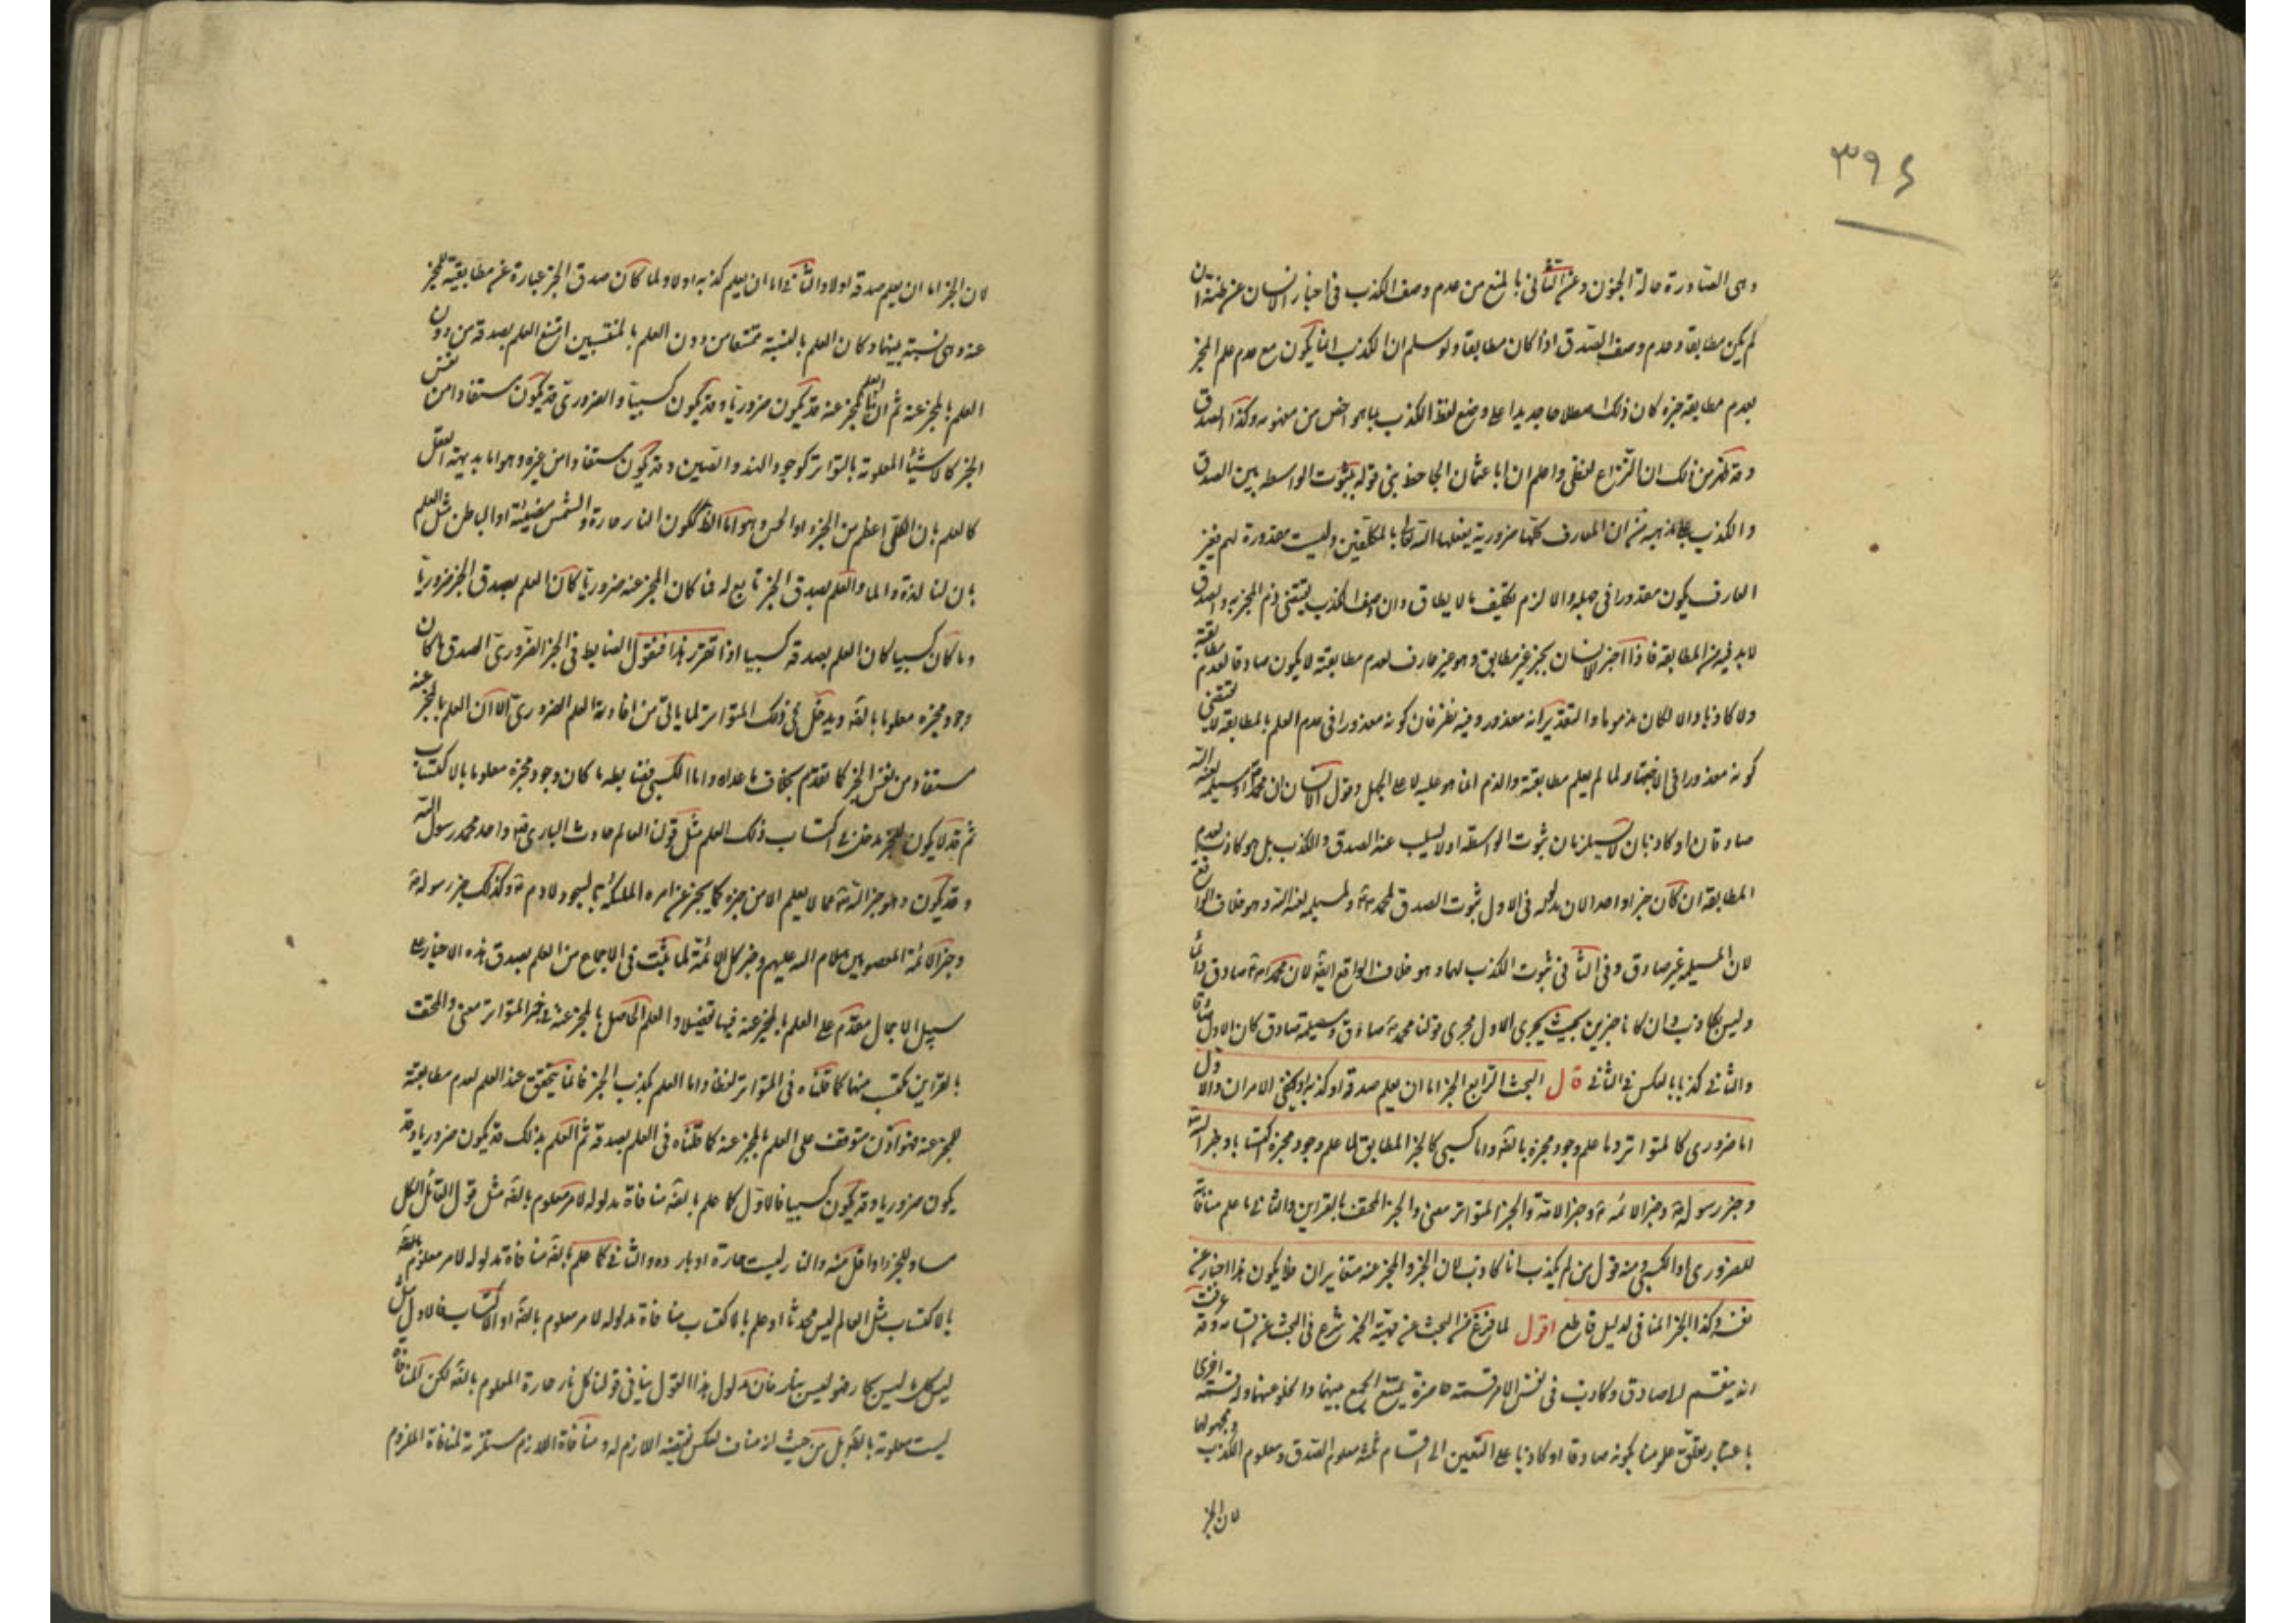 ٣٩٤
وهى الصادرة حالة الجنون وعن الثانى بالمنع من عدم وصف الكذب فى اخبار الانسان عن ظنه ان
لم يكن مطابقا وعدم وصف الصدق اذا كان مطابقا ولو سلم ان الكذب انما يكون مع عدم علم المخبر
بعدم مطابقة خبره كان ذلك اصطلاحا جديدا على وضع لفظ الكذب بما هو اخص من مفهومه وكذا الصدق
وقد ظهر من ذلك ان النزاع لفظى واعلم ان ابا عثمان الجاحظ بنى قوله بثبوت الواسطه بين الصدق
والكذب على مذهبه من ان المعارف كلها ضرورية يفعلها الله تعالى بالمكلفين وليست مقدورة لهم فغير
العارف يكون معذورا فى جهله والا لزم تكليف ما لا يطاق وان وصف الكذب يقتضى ذم المخبر به والصدق
لا بد فيه من المطابقة فاذا اخبر الانسان بخبر غير مطابق وهو غير عارف لعدم مطابقته لا يكون صادقا لعدم مطابقته
ولا كاذبا والا لكان مذموما والتقدير انه معذور وفيه نظر فان كونه معذورا فى عدم العلم بالمطابقة لا يقتضى
كونه معذورا فى الاخبار لما لم يعلم مطابقته والذم انما هو عليه لا على الجهل وقول الانسان ان محمدا ومسيلمة لعنه الله
صادقان او كاذبان لا يستلزمان ثبوت الواسطة اولا يسلب عنه الصدق والكذب بل هو كاذب لعدم
المطابقة ان كان خبرا واحدا لان مدلوله فى الاول ثبوت الصدق لمحمد ولمسيلمه لعنه الله وهو خلاف الواقع
لان المسيلمه غير صادق وفى الثانى ثبوت الكذب لهما وهو خلاف الواقع ايضا لان محمدا صادق دائما
وليس بكاذب وان كانا خبرين بحيث يجرى الاول مجرى قولنا محمد صادق ومسيلمة صادق كان الاول صادقا
والثانى كذبا بالعكس فى الثانى قال البحث الرابع الخبر اما ان يعلم صدقه او كذبه او يخفى الامران والاول
اما ضرورى كالمتواتر وما علم وجود مخبره بالضرورة واما كسبى كالخبر المطابق لما علم وجود مخبره اكتسابا وخبر الله
وخبر رسوله وخبر الائمة وخبر الامة والخبر المتواتر معنى والخبر المحتف بالقراين والثانى ما علم منافاته
للضرورى او الكسبى ومنه قول من لم يكذب انا كاذب لان الخبر والمخبر عنه متغايران فلا يكون هذا اخبارا عن
نفسه وكذا الخبر المنافى لدليل قاطع اقول لما فرغ من البحث عن مهية الخبر شرع فى البحث عن اقسامه وقد عرفت
انه ينقسم الى صادق وكاذب فى نفس الامر قسمة حاصرة يمتنع الجمع بينهما والخلو عنهما وله قسمة اخرى
باعتبار تعلق علومنا بكونه صادقا او كاذبا على التعيين الى اقسام ثلثه معلوم الصدق ومعلوم الكذب ومجهولهما
لان الخبر
لان الخبر اما ان يعلم صدقه اولا والثانى اما ان يعلم كذبه اولا ولما كان صدق الخبر عبارة عن مطابقته للمخبر
عنه وهى نسبة بينهما وكان العلم بالنسبة ممتنعا من دون العلم بالمنتسبين امتنع العلم بصدقه من دون
العلم بالمخبر عنه ثم ان العلم بالمخبر عنه قد يكون ضروريا وقد يكون كسبيا والضرورى قد يكون مستفادا من نفس
الخبر كالاشياء المعلومة بالتواتر كوجود الهند والصين وقد يكون مستفادا من غيره وهو اما بديهة العقل
كالعلم بان الكل اعظم من الجزو او الحس وهو اما الظاهر ككون النار حارة والشمس مضيئة او الباطن مثل العلم
بان لنا لذة والما والعلم بصدق الخبر تابع له فما كان المخبر عنه ضروريا كان العلم بصدق الخبر ضروريا
وما كان كسبيا كان العلم بصدقه كسبيا اذا تقرر هذا فنقول الضابط فى الخبر الضرورى الصدق ما كان
وجود مخبره معلوما بالضرورة ويدخل فى ذلك المتواتر لما ياتى من افادته العلم الضرورى الا ان العلم بالمخبر عنه
مستفاد من نفس الخبر كما تقدم بخلاف ما عداه واما الكسبى فضابطه ما كان وجود مخبره معلوما بالاكتساب
ثم قد لا يكون للخبر مدخل فى اكتساب ذلك العلم مثل قولنا العالم حادث البارى تعالى واحد محمد رسول الله
وقد يكون وهو خبر الله تعالى عما لا يعلم الا من خبره كما يخبر عن امره الملئكة بالسجود لادم وكذلك خبر رسوله
وخبر الائمة المعصومين سلام الله عليهم وخبر كل الامة لما يثبت فى الاجماع من العلم بصدق هذه الاخبار على
سبيل الاجمال مقدم على العلم بالمخبر عنه فيها تفصيلا والعلم الحاصل بالمخبر عنه فى خبر المتواتر معنى والمحتف
بالقراين مكتسب منها كما قلناه فى المتواتر لفظا واما العلم بكذب الخبر فانما يتحقق عند العلم بعدم مطابقته
للمخبر عنه فهو اذن متوقف على العلم بالمخبر عنه كما قلناه فى العلم بصدقه ثم العلم بذلك قد يكون ضروريا وقد
يكون ضروريا وقد يكون كسبيا فالاول كما علم بالضرورة منافاة مدلوله لامر معلوم بالضرورة مثل قول القائل الكل
مساو للجزء او اقل منه والنار ليست حارة او بارده والثانى كما علم بالضرورة منافاة مدلوله لامر معلوم
بالاكتساب مثل العالم ليس محدثا او علم بالاكتساب منافاة مدلوله لامر معلوم بالضرورة او الاكتساب فالاول مثل
ليس كل ما ليس بحار فهو ليس بنار فان مدلول هذا القول ينافى قولنا كل نار حارة المعلوم بالضرورة لكن المنافاة
ليست معلومة بالضرورة بل من حيث انه مناف لعكس نقيضه اللازم له ومنافاة اللازم مستلزمة لمنافاة الملزوم